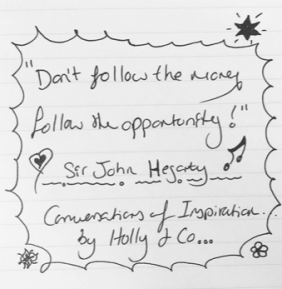 "Don't follow the money
follow the opportunity!"
Sir John Hegarty
Conversations of Inspiration...
by Holly & Co...